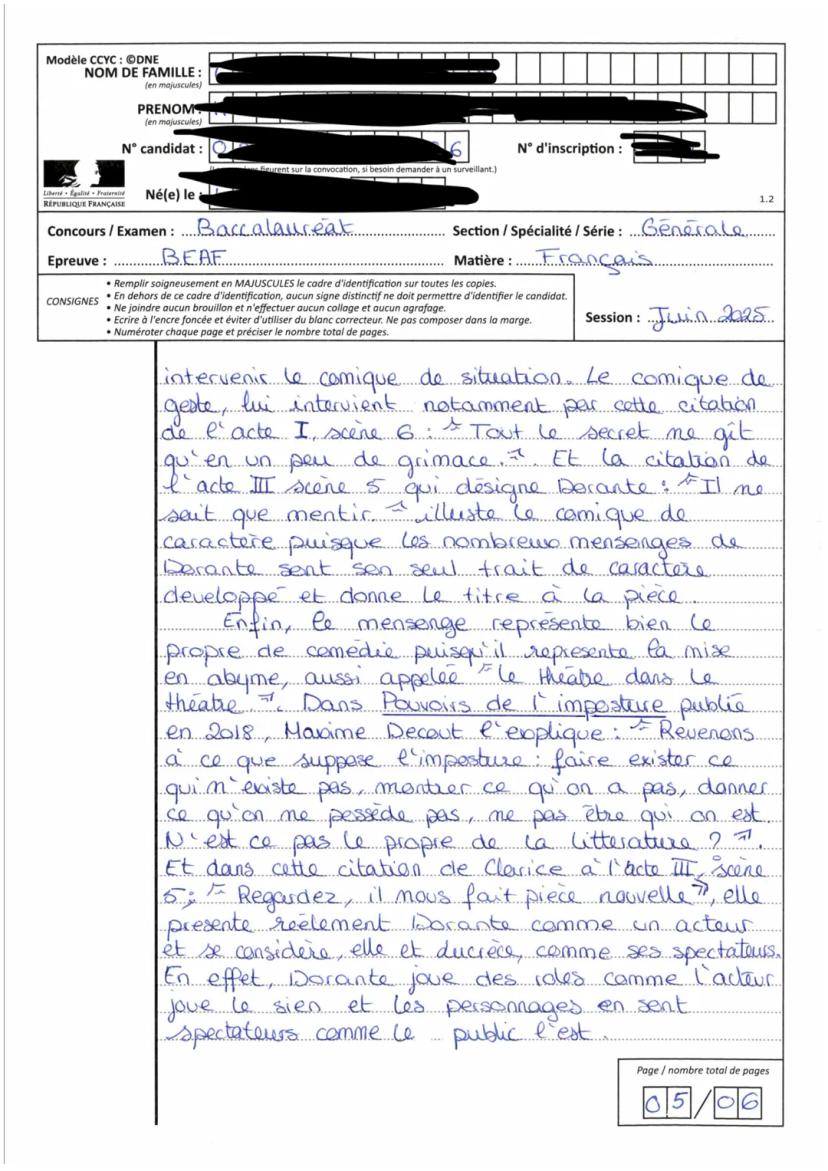 Modèle CCYC : ©DNE
NOM DE FAMILLE :
(en majuscules)
PRENOM
(en majuscules)
N° candidat : 6 N° d'inscription :
figurent sur la convocation, si besoin demander à un surveillant.)
Liberté • Égalité • Fraternité
RÉPUBLIQUE FRANÇAISE
Né(e) le :
1.2
Concours / Examen : Baccalauréat Section / Spécialité / Série : Générale
Epreuve : BEAF Matière : Français
CONSIGNES
• Remplir soigneusement en MAJUSCULES le cadre d'identification sur toutes les copies.
• En dehors de ce cadre d'identification, aucun signe distinctif ne doit permettre d'identifier le candidat.
• Ne joindre aucun brouillon et n'effectuer aucun collage et aucun agrafage.
• Ecrire à l'encre foncée et éviter d'utiliser du blanc correcteur. Ne pas composer dans la marge.
• Numéroter chaque page et préciser le nombre total de pages.
Session : Juin 2025
intervenir le comique de situation. Le comique de
geste, lui intervient notamment par cette citation
de l'acte I, scène 6 : "Tout le secret ne gît
qu'en un peu de grimace.". Et la citation de
l'acte III scène 5 qui désigne Dorante : "Il ne
sait que mentir." illuste le comique de
caractère puisque les nombreux mensenges de
Dorante sont son seul trait de caractère
developpé et donne le titre à la pièce.
Enfin, le mensenge représente bien le
propre de comédie puisqu'il represente la mise
en abyme, aussi appelée "le théâtre dans le
théâtre". Dans Pouvoirs de l'imposture publié
en 2018, Maxime Decout l'explique : "Revenons
à ce que suppose l'imposture : faire exister ce
qui n'existe pas, montrer ce qu'on a pas, donner
ce qu'on ne possède pas, ne pas être qui on est.
N'est ce pas le propre de la littérature ?".
Et dans cette citation de Clarice à l'acte III, scène
5 ; "Regardez, il nous fait pièce nouvelle", elle
présente réelement Dorante comme un acteur
et se considère, elle et ducrèce, comme ses spectateurs.
En effet, Dorante joue des roles comme l'acteur
joue le sien et les personnages en sont
spectateurs comme le public l'est.
Page / nombre total de pages
05/06